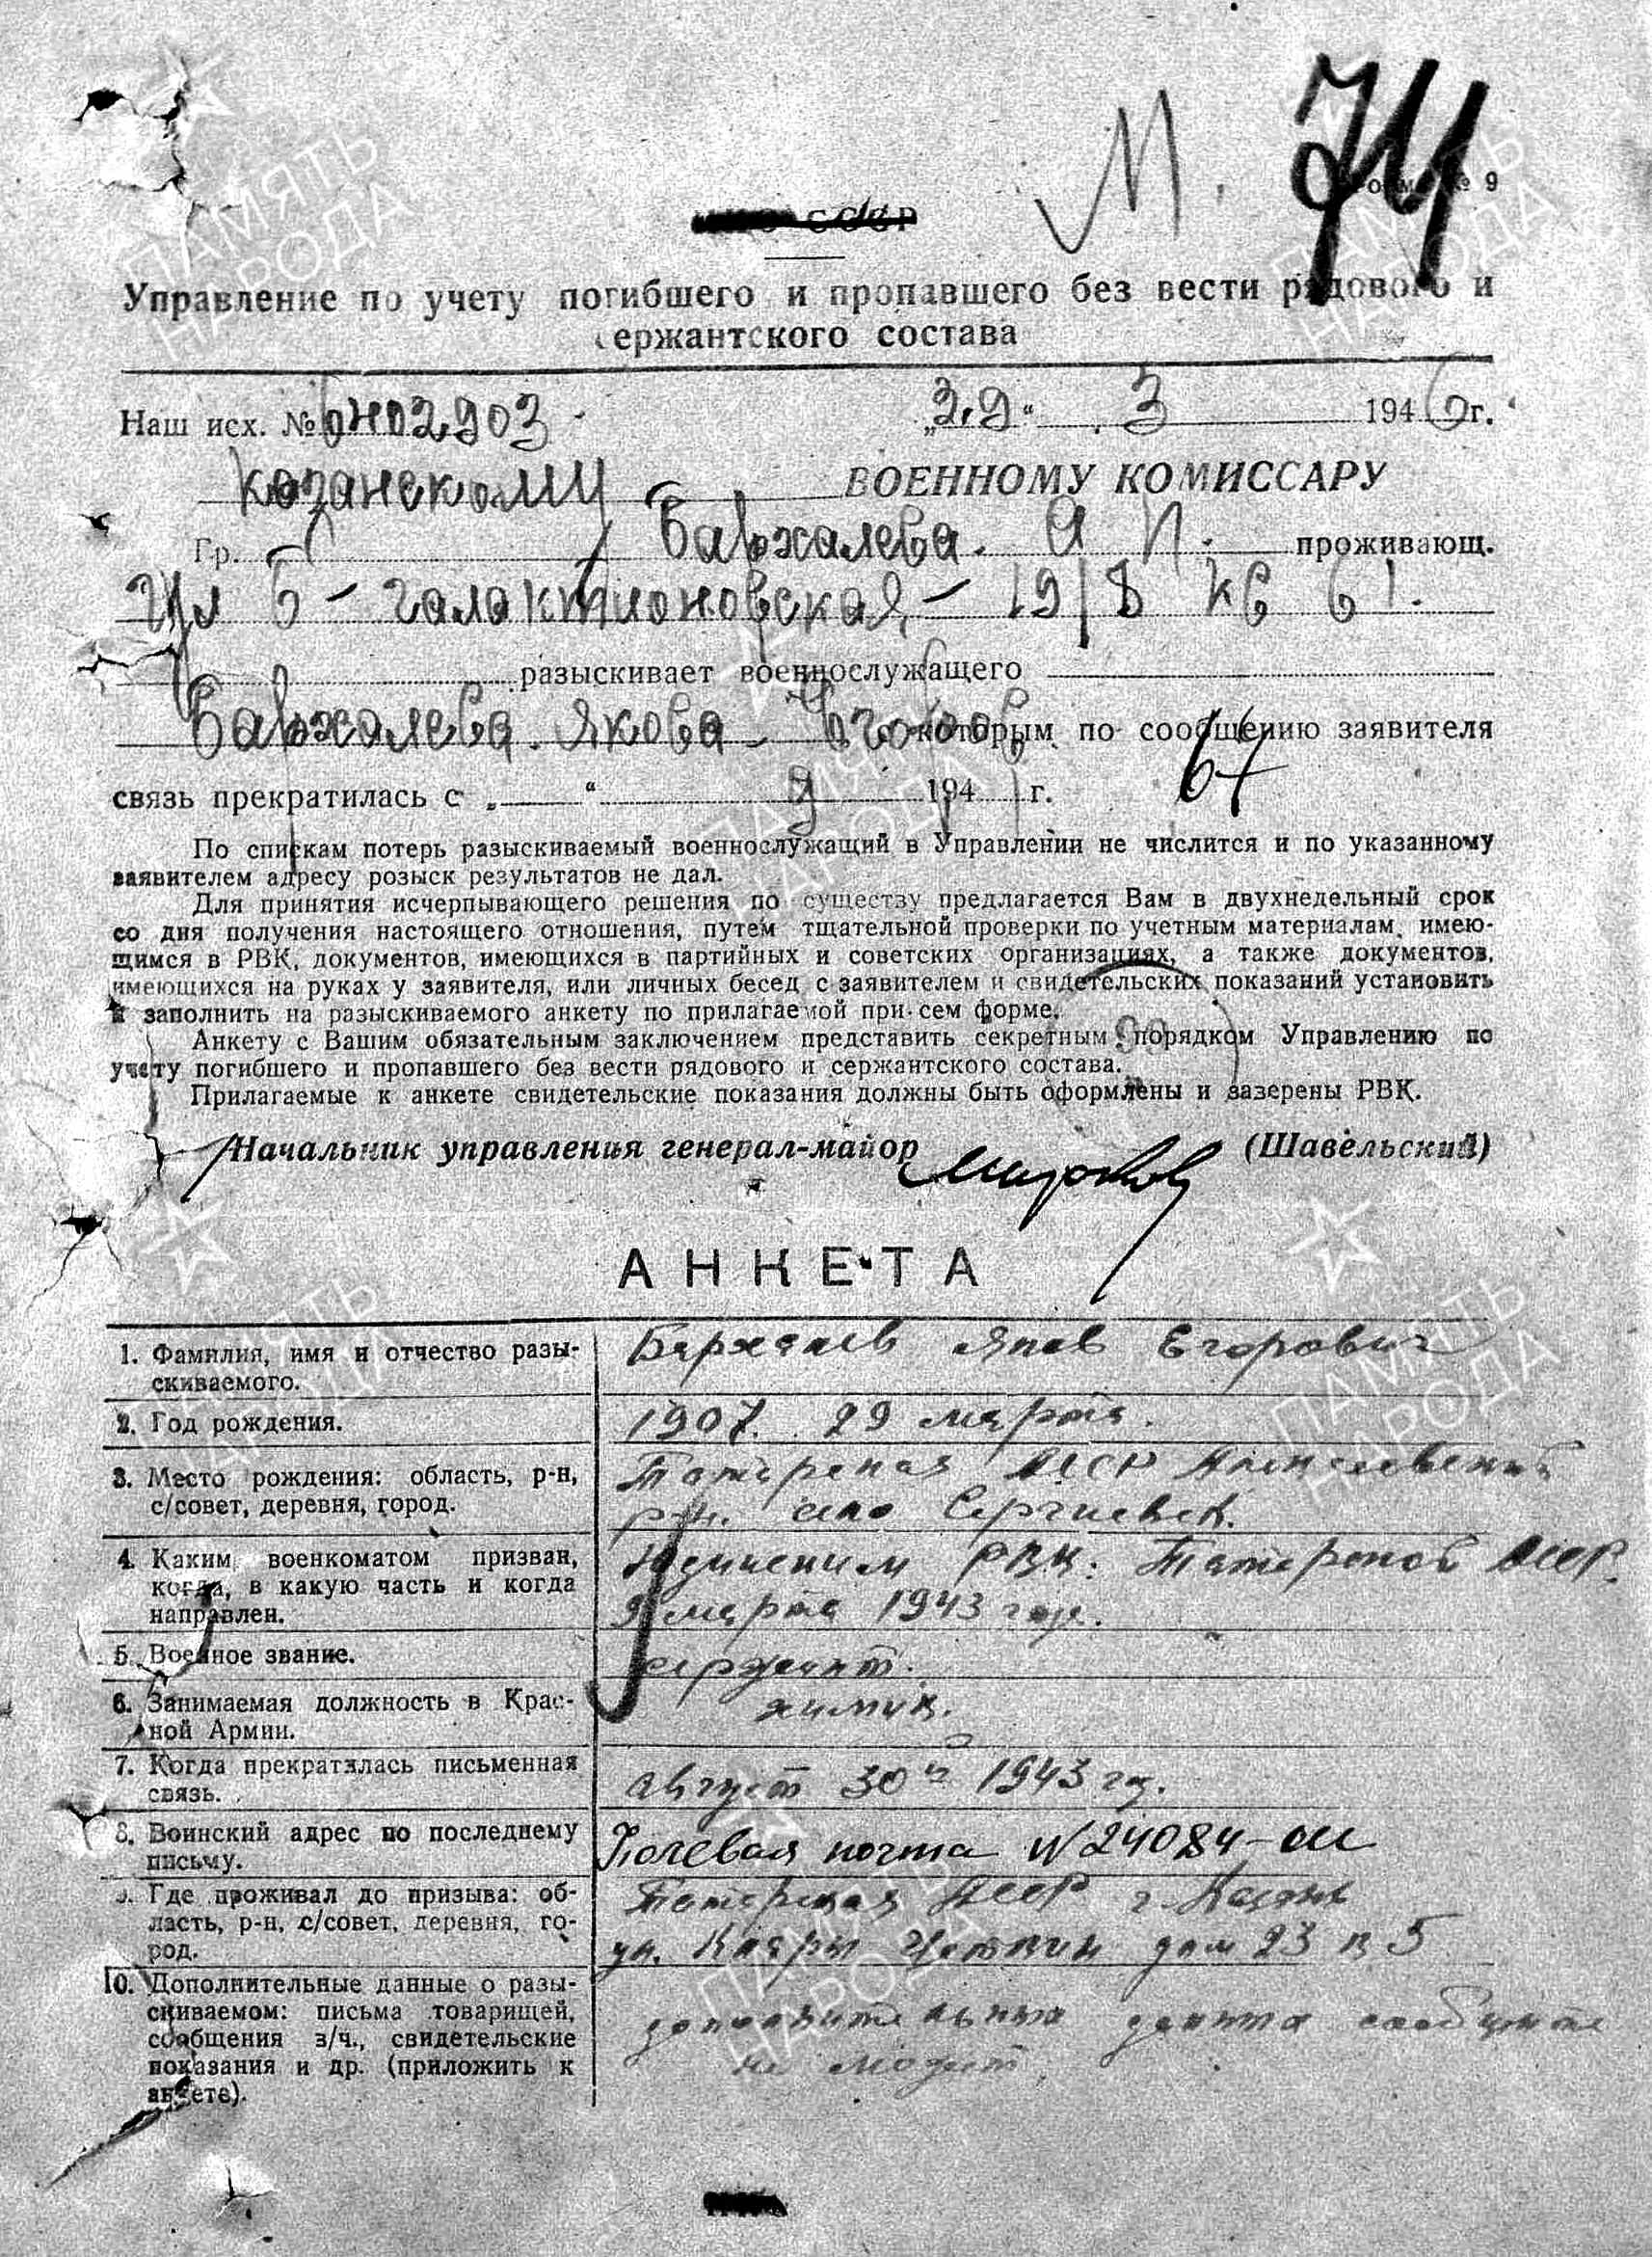 М. 74
Форма № 9
СССР
Управление по учету погибшего и пропавшего без вести рядового и
сержантского состава
Наш исх. № „29“ 3 1946 г.
Казанскому ВОЕННОМУ КОМИССАРУ
Гр. Бархалева. А П. проживающ.
Ул Б-Галактионовская, - 19/8 кв 61.
разыскивает военнослужащего
Бархалева Якова которым по сообщению заявителя
связь прекратилась с „ “ 194 г. 64
По спискам потерь разыскиваемый военнослужащий в Управлении не числится и по указанному
заявителем адресу розыск результатов не дал.
Для принятия исчерпывающего решения по существу предлагается Вам в двухнедельный срок
со дня получения настоящего отношения, путем тщательной проверки по учетным материалам, имею-
щимся в РВК, документов, имеющихся в партийных и советских организациях, а также документов,
имеющихся на руках у заявителя, или личных бесед с заявителем и свидетельских показаний установить
и заполнить на разыскиваемого анкету по прилагаемой при сем форме.
Анкету с Вашим обязательным заключением представить секретным порядком Управлению по
учету погибшего и пропавшего без вести рядового и сержантского состава.
Прилагаемые к анкете свидетельские показания должны быть оформлены и заверены РВК.
Начальник управления генерал-майор (Шавельский)
АНКЕТА
1. Фамилия, имя и отчество разы-
скиваемого.
Бархалев Яков Егорович
2. Год рождения.
1907. 29 марта.
3. Место рождения: область, р-н,
с/совет, деревня, город.
Татарская АССР Алексеевский
р-н. село Сергиевск.
4. Каким военкоматом призван,
когда, в какую часть и когда
направлен.
Юдинским РВК. Татарской АССР.
9 марта 1943 года.
5. Военное звание.
сержант.
6. Занимаемая должность в Крас-
ной Армии.
химик.
7. Когда прекратилась письменная
связь.
август 30 1943 г.
8. Воинский адрес по последнему
письму.
Полевая почта N 24084-ш
9. Где проживал до призыва: об-
ласть, р-н, с/совет, деревня, го-
род.
Татарская АССР г. Казань
ул. Клары Цеткин дом 23 к 5
10. Дополнительные данные о разы-
скиваемом: письма товарищей,
сообщения з/ч., свидетельские
показания и др. (приложить к
анкете).
дополнительных данных сообщить
не может
ПАМЯТЬ
НАРОДА